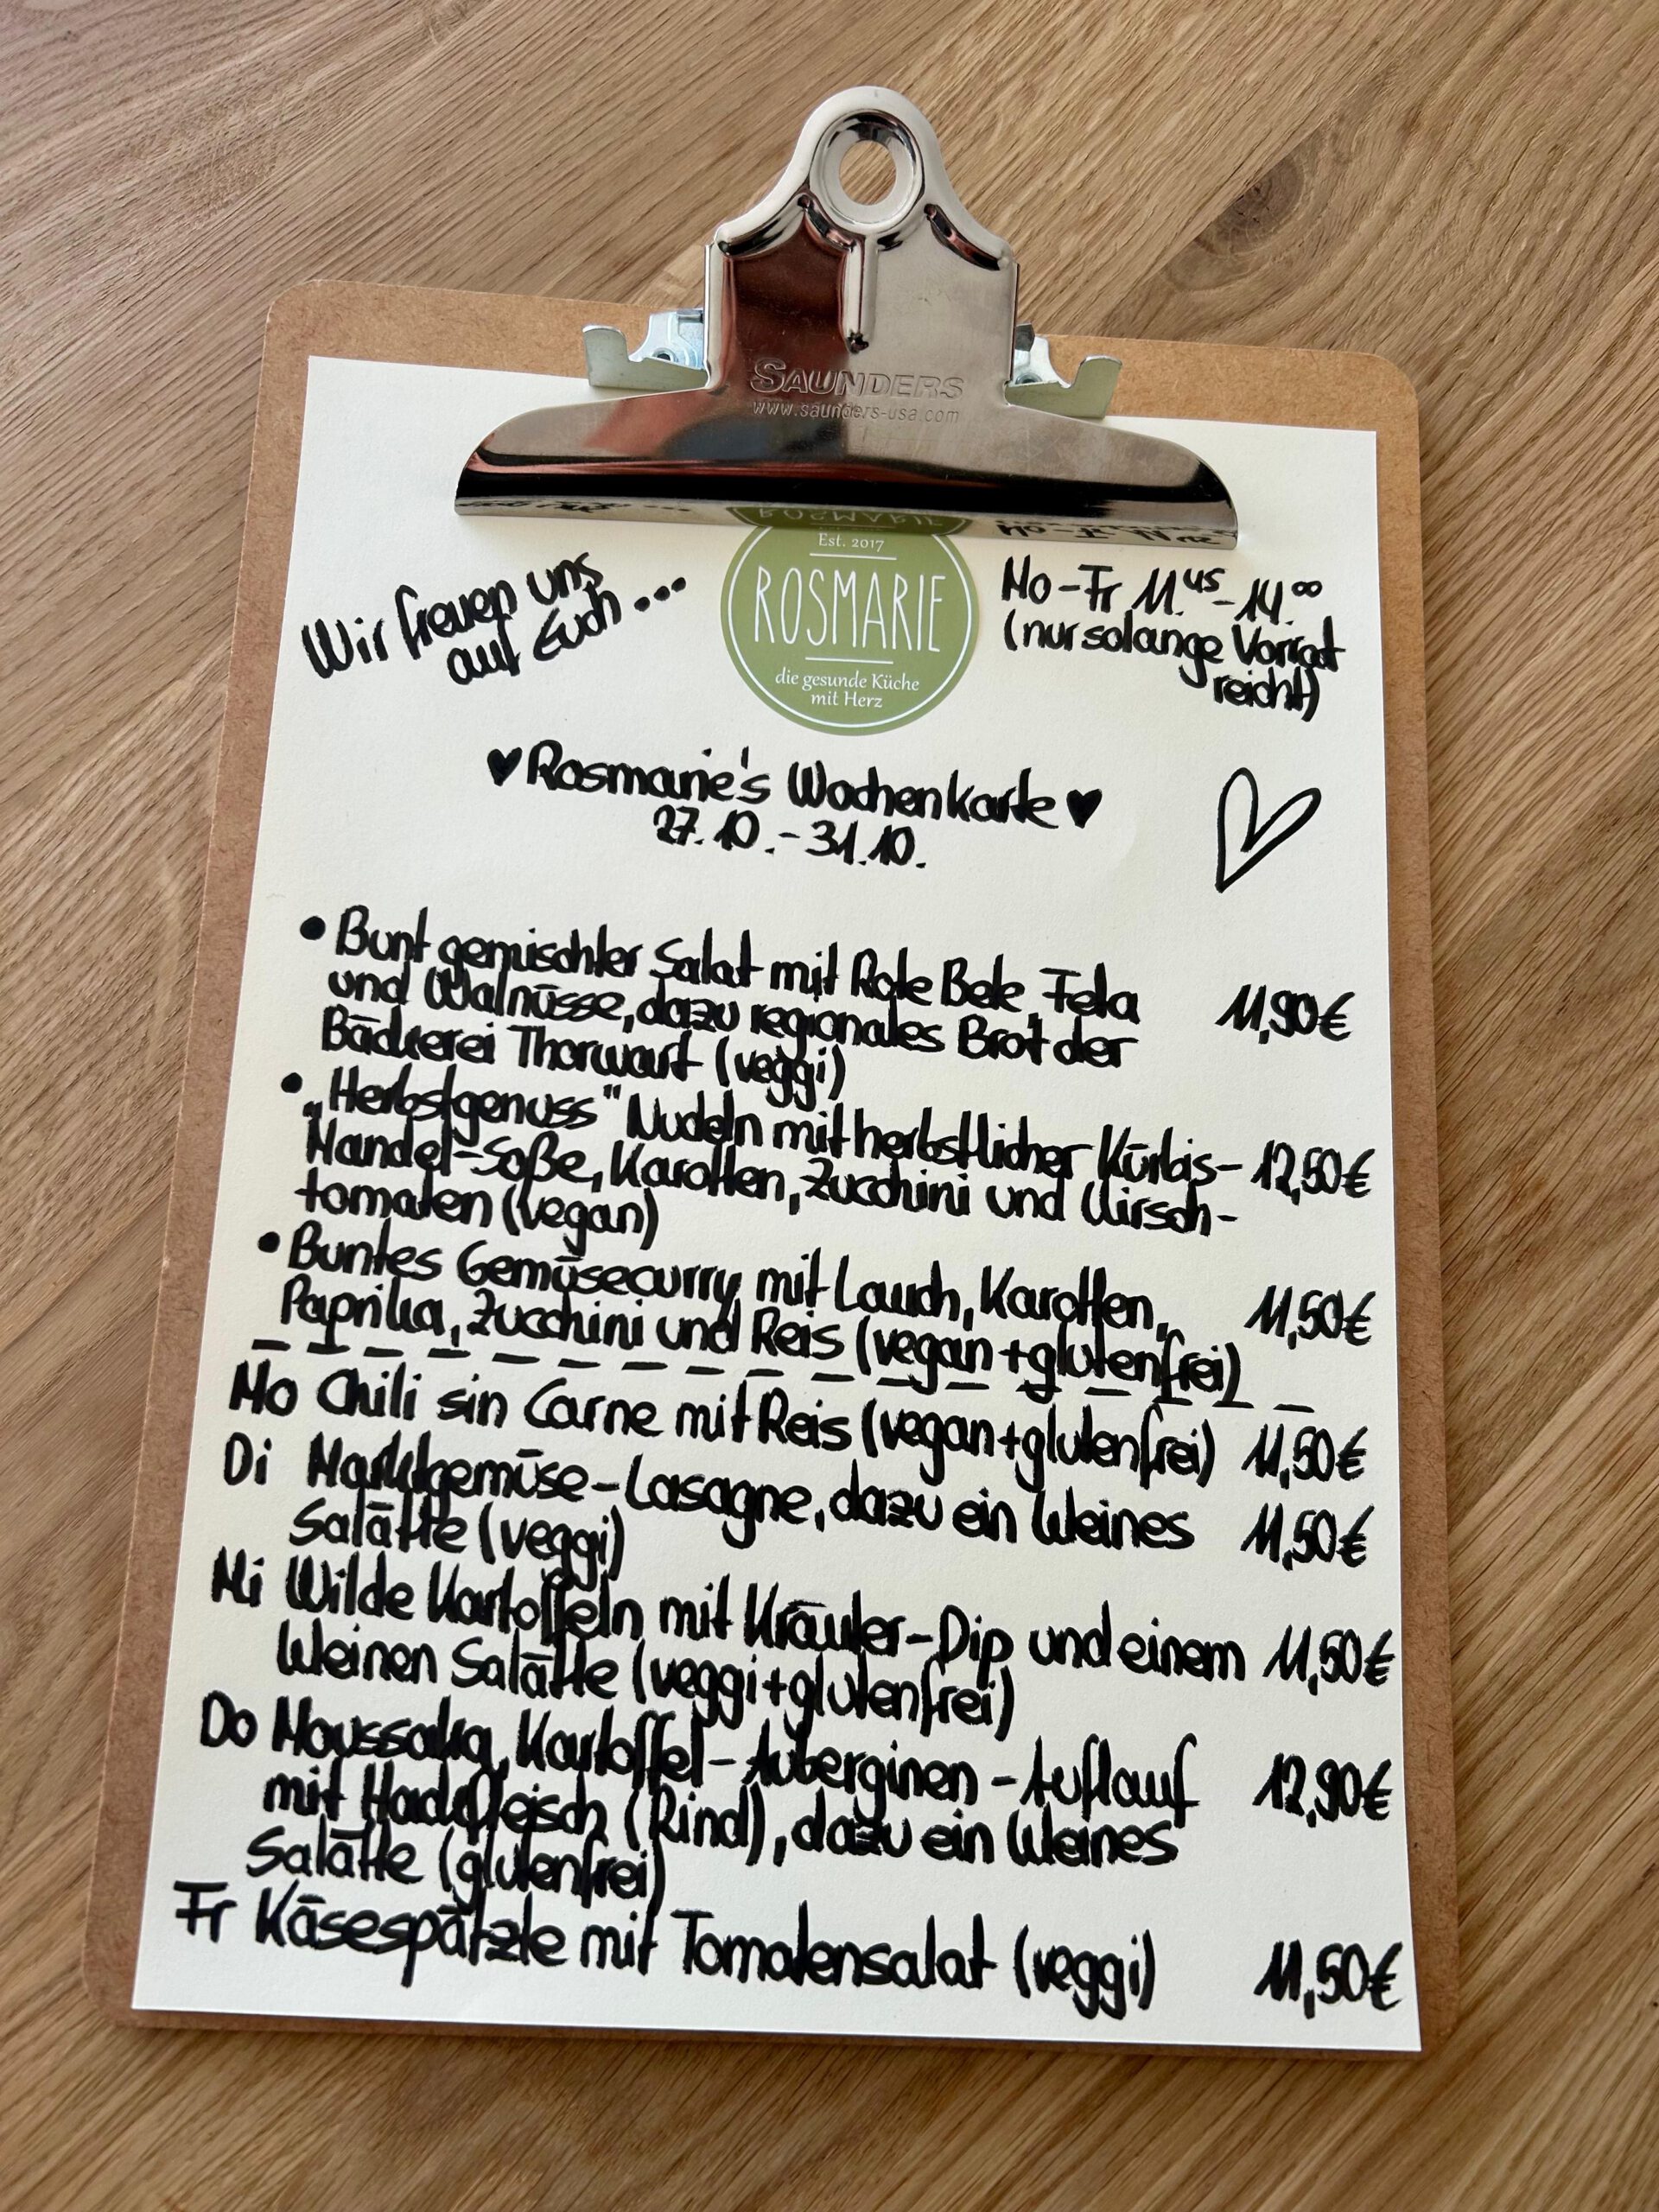 SAUNDERS
www.saunders-usa.com
Wir freuen uns
auf Euch...
Est. 2017
ROSMARIE
die gesunde Küche
mit Herz
Mo-Fr 11.45-14.00
(nur solange Vorrat
reicht)
♥Rosmarie's Wochenkarte♥
27.10.-31.10.
• Bunt gemischter Salat mit Rote Bete, Feta
und Walnüsse, dazu regionales Brot der 11,90€
Bäckerei Thorwart (veggi)
• „Herbstgenuss" Nudeln mit herbstlicher Kürbis- 12,50€
Mandel-Soße, Karotten, Zucchini und Kirsch-
tomaten (vegan)
• Buntes Gemüsecurry mit Lauch, Karotten, 11,50€
Paprika, Zucchini und Reis (vegan+glutenfrei)
Mo Chili sin Carne mit Reis (vegan+glutenfrei) 11,50€
Di Marktgemüse-Lasagne, dazu ein kleines 11,50€
Salätle (veggi)
Mi Wilde Kartoffeln mit Kräuter-Dip und einem 11,50€
kleinen Salätle (veggi+glutenfrei)
Do Moussaka, Kartoffel-Auberginen-Auflauf 12,90€
mit Hackfleisch (Rind), dazu ein kleines
Salätle (glutenfrei)
Fr Käsespätzle mit Tomatensalat (veggi) 11,50€